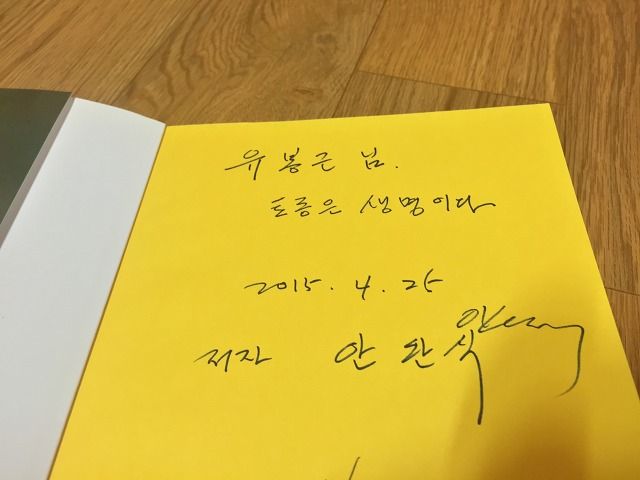 유봉근 님.
토종은 생명이다
2015. 4. 25
저자 안완식